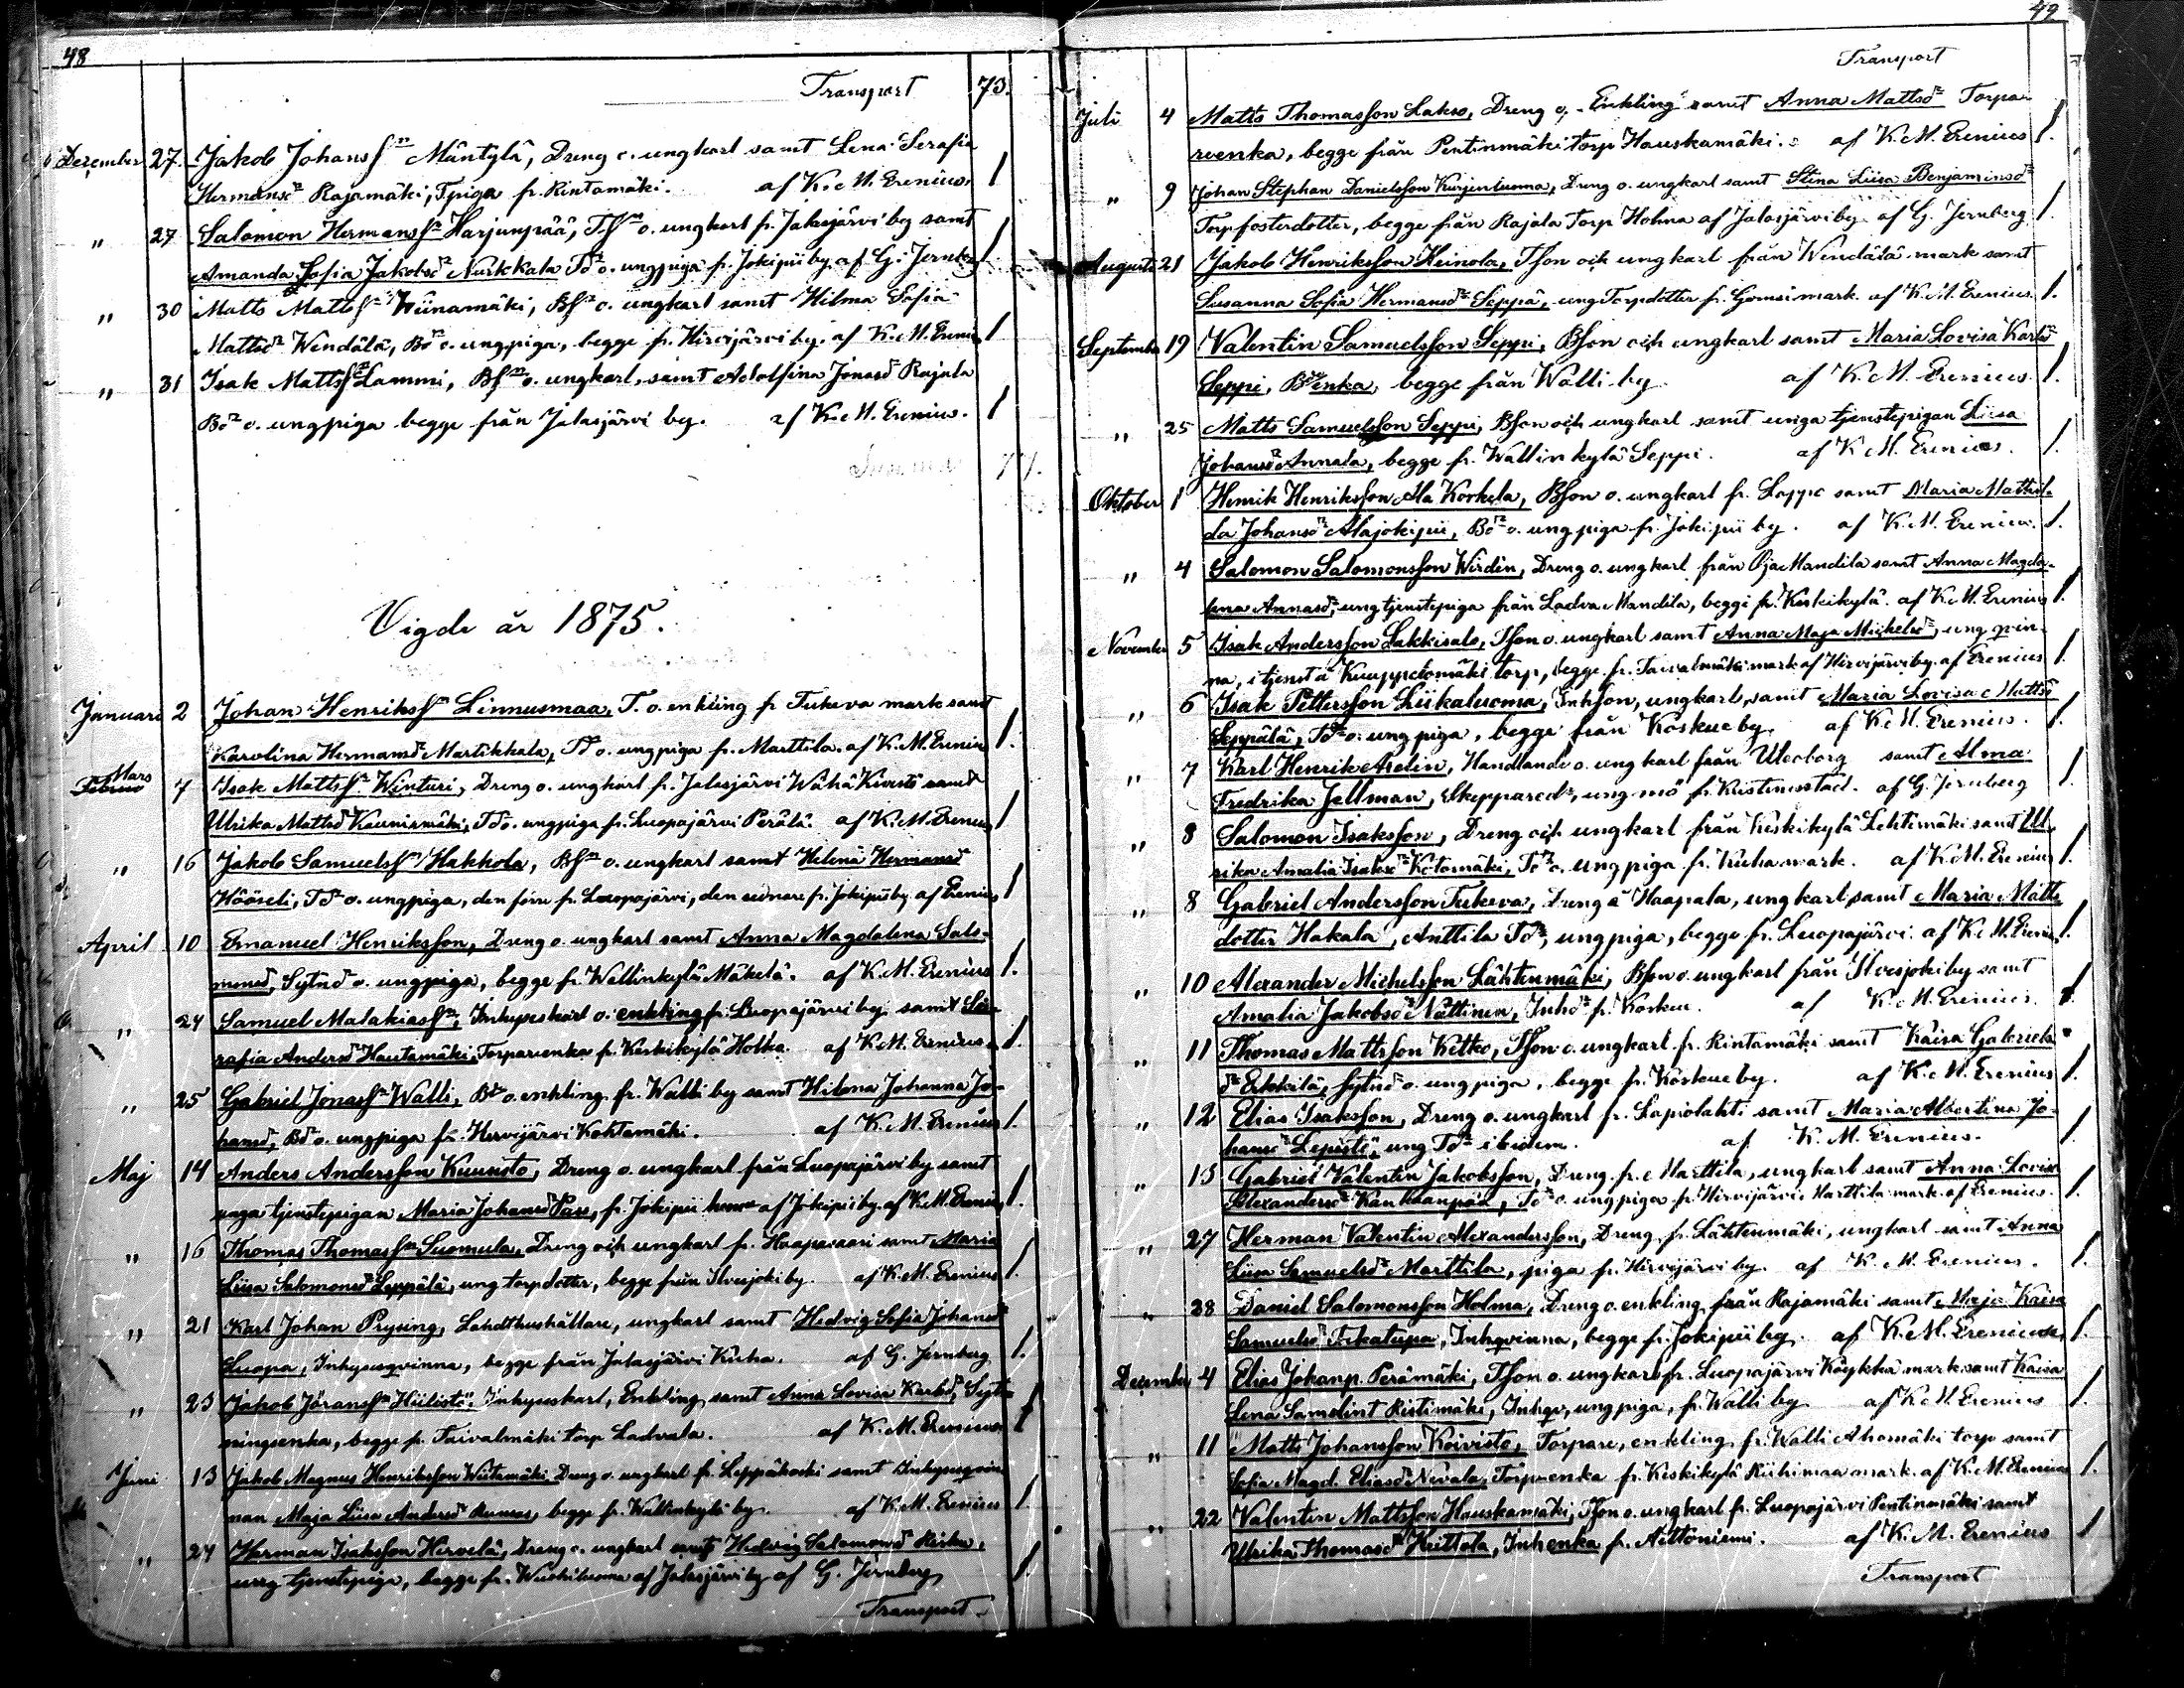 48
Transport 73.
December 27. Jakob Johansson Mäntylä, Dreng o. ungkarl samt Lena Serafia
Hermansdr Rajamäki, Tpiga fr. Rintamäki. af K. M. Erenius 1
" 27 Salomon Hermansson Harjunpää, Tsson o. ungkarl fr. Jalasjärvi by samt
Amanda Sofia Jakobsdr Nurkkala Tdr o. ungpiga fr. Jokipii by af G. Jernberg 1
" 30 Matts Mattsson Wiinamäki, Bsn o. ungkarl samt Hilma Sofia
Mattsdr Wendälä, Bdr o. ungpiga, begge fr. Hirvijärvi by. af K. M. Erenius 1
" 31 Isak Mattsson Lammi, Bsn o. ungkarl, samt Adolfina Jonasd Rajala
Bdr o. ungpiga begge från Jalasjärvi by. af K. M. Erenius. 1
Summa 77.
Vigde år 1875.
Januari 2 Johan Henriksson Linnusmaa, T. o. enkling fr Tukeva mark samt
Karolina Hermansdr Martikkala, Td o. ungpiga fr. Marttila. af K. M. Erenius 1.
Mars
Februari 7 Isak Mattsson Winturi, Dreng o. ungkarl fr. Jalasjärvi Wähä Kivistö samt
Ulrika Mattsd Kaunismäki, Td o. ungpiga fr. Luopajärvi Perälä. af K. M. Erenius 1
" 16 Jakob Samuelsson Hakkola, Bsn o. ungkarl samt Helena Hermansd
Hööseli, Tdr o. ungpiga, den förre fr. Luopajärvi, den sednare fr. Jokipii by af Erenius 1
April 10 Emanuel Henriksson, Dreng o. ungkarl samt Anna Magdalena Salo-
monsd, Sytnd o. ungpiga, begge fr. Wallinkylä Mäkelä. af K. M. Erenius 1.
" 24 Samuel Malakiasson, Inhyseskarl o. enkling fr. Luopajärvi by samt Se-
rafia Andersd Hautamäki, Torparenka fr. Keskikylä Hokka. af K. M. Erenius. 1.
" 25 Gabriel Jonasson Walli, Bde o. enkling fr. Walli by samt Hilma Johanna Jo-
hansd, Bd o. ungpiga fr. Hirvijärvi Kohtamäki. af K. M. Erenius 1.
Maj 14 Anders Andersson Kuusisto, Dreng o. ungkarl från Luopajärvi by samt
unga tjenstepigan Maria Johansd Pass, fr. Jokipii af Jokipii by. af K. M. Erenius 1.
" 16 Thomas Thomasson Suomela, Dreng och ungkarl fr. Haapasaari samt Maria
Liisa Salomonsd Leppälä, ung torpdotter, begge från Ilvesjoki by. af K. M. Erenius 1.
" 21 Karl Johan Prysing, Landthushållare, ungkarl samt Hedvig Sofia Johansd
Luopa, Inhysesqvinna, begge från Jalasjärvi Kuha. af G. Jernberg 1.
" 23 Jakob Göransson Hiilistö, Inhyseskarl, Enkling samt Anna Lovisa Karlsd, Syt-
ningsenka, begge fr. Taivalmäki torp Ladvala. af K. M. Erenius 1
Juni 13 Jakob Magnus Henriksson Wiitamäki Dreng o. ungkarl fr. Leppäkoski samt Inhysesqvin-
nan Maja Liisa Andersd, begge fr. Wallinkylä by. af K. M. Erenius 1
" 24 Herman Isaksson Hirvelä, Dreng o. ungkarl samt Hedvig Salomonsd,
ung tjenstepiga, begge fr. af Jalasjärvi by af G. Jernberg 1.
Transport
49
Transport
Juli 4 Matts Thomasson Lakso, Dreng o. Enkling samt Anna Mattsdr Torpa-
renka, begge från Pentinmäki torp Hauskamäki. af K. M. Erenius 1.
" 9 Johan Stephan Danielsson Kurjenluoma, Dreng o. ungkarl samt Stina Liisa Benjaminsdr
Torpfosterdotter, begge från Rajala Torp Holma af Jalasjärvi by af G. Jernberg 1.
Augusti 21 Jakob Henriksson Heinola, Tson och ungkarl från Wendälä mark samt
Susanna Sofia Hermansdr Seppä, ung Torpdotter fr. Gomsi mark. af K. M. Erenius. 1.
September 19 Valentin Samuelsson Seppi, Bson och ungkarl samt Maria Lovisa Karlsdr
Seppi, Bdeenka, begge från Walli by. af K. M. Erenius. 1.
" 25 Matts Samuelsson Seppi, Bson och ungkarl samt unga tjenstepigan Liisa
Johansdr Annala, begge fr. Wallinkylä Seppi. af K. M. Erenius. 1.
Oktober 1 Henrik Henriksson Ala Korkela, Bson o. ungkarl fr. Lappo samt Maria Mathil-
da Johansdr Alajokipii, Bdr o. ungpiga fr. Jokipii by. af K. M. Erenius. 1.
" 4 Salomon Salomonsson Wirdin, Dreng o. ungkarl från Oja Mandila samt Anna Magda-
lena Annasdr, ung tjenstepiga från Ladva Mandila, begge fr. Keskikylä. af K. M. Erenius 1.
November 5 Isak Andersson Lakkisalo, Tson o. ungkarl samt Anna Maja Michelsdr, ung qvin-
na, i tjenst å Kuuppelomäki torp, begge fr. Taivalmäki mark af Hirvijärvi by. af Erenius 1.
" 6 Isak Pettersson Liikaluoma, Inhson, ungkarl, samt Maria Lovisa Mattsd
Seppälä, Tdr o. ungpiga, begge från Koskue by. af K. M. Erenius. 1.
" 7 Karl Henrik Aselin, Handlande o. ungkarl från Uleoborg samt Alma
Fredrika Jellman, Skepparedr, ung mö fr. Kristinestad. af G. Jernberg 1.
" 8 Salomon Isaksson, Dreng och ungkarl från Keskikylä Lehtimäki samt Ul-
rika Amalia Isaksdr Ketomäki, Tdr o. ungpiga fr. Kuha mark. af K. M. Erenius 1.
" 8 Gabriel Andersson Tukeva, Dreng å Haapala, ungkarl, samt Maria Matts
dotter Hakala, Anttila Tdr, ungpiga, begge fr. Luopajärvi. af K. M. Erenius 1.
" 10 Alexander Michelsson Lähteenmäki, Bson o. ungkarl från Ilvesjoki by samt
Amalia Jakobsdr Nättinen, Inhdr fr. Koskue. af K. M. Erenius. 1.
" 11 Thomas Mattsson Ketko, Tson o. ungkarl fr. Rintamäki samt Kaisa Gabriels-
dr Erkkilä, Sytnd o. ungpiga, begge fr. Koskue by. af K. M. Erenius 1.
" 12 Elias Isaksson, Dreng o. ungkarl fr. Lapiolahti samt Maria Albertina Jo-
hansdr Lepistö, ung Tdr ibidem. af K. M. Erenius. 1
" 13 Gabriel Valentin Jakobsson, Dreng fr. Marttila, ungkarl samt Anna Lovisa
Alexandersdr Kankaanpää, Tdr o. ungpiga fr. Hirvijärvi Marttila mark. af Erenius. 1.
" 27 Herman Valentin Alexandersson, Dreng fr. Lähteenmäki, ungkarl samt Anna
Liisa Samuelsdr Marttila, piga fr. Hirvijärvi by. af K. M. Erenius. 1.
" 28 Daniel Salomonsson Holma, Dreng o. enkling från Rajamäki samt Maja Kaisa
Samuelsdr, Inhqvinna, begge fr. Jokipii by. af K. M. Erenius 1.
December 4 Elias Johanp. Perämäki, Tson o. ungkarl fr. Luopajärvi Köykkä mark samt Kaisa
Lena Samelint Ristimäki, Inhqv, ungpiga, fr. Walli by. af K. M. Erenius 1.
" 11 Matts Johansson Koivisto, Torpare, enkling fr. Walli Ahomäki torp samt
Sofia Magd. Eliasdr Nevala, Torparenka fr. Keskikylä Riihimaa mark. af K. M. Erenius 1.
" 22 Valentin Mattsson Hauskamäki, Tson o. ungkarl fr. Luopajärvi Pentinmäki samt
Ulrika Thomasdr Huttola, Inhenka fr. Aittoniemi. af K. M. Erenius 1
Transport